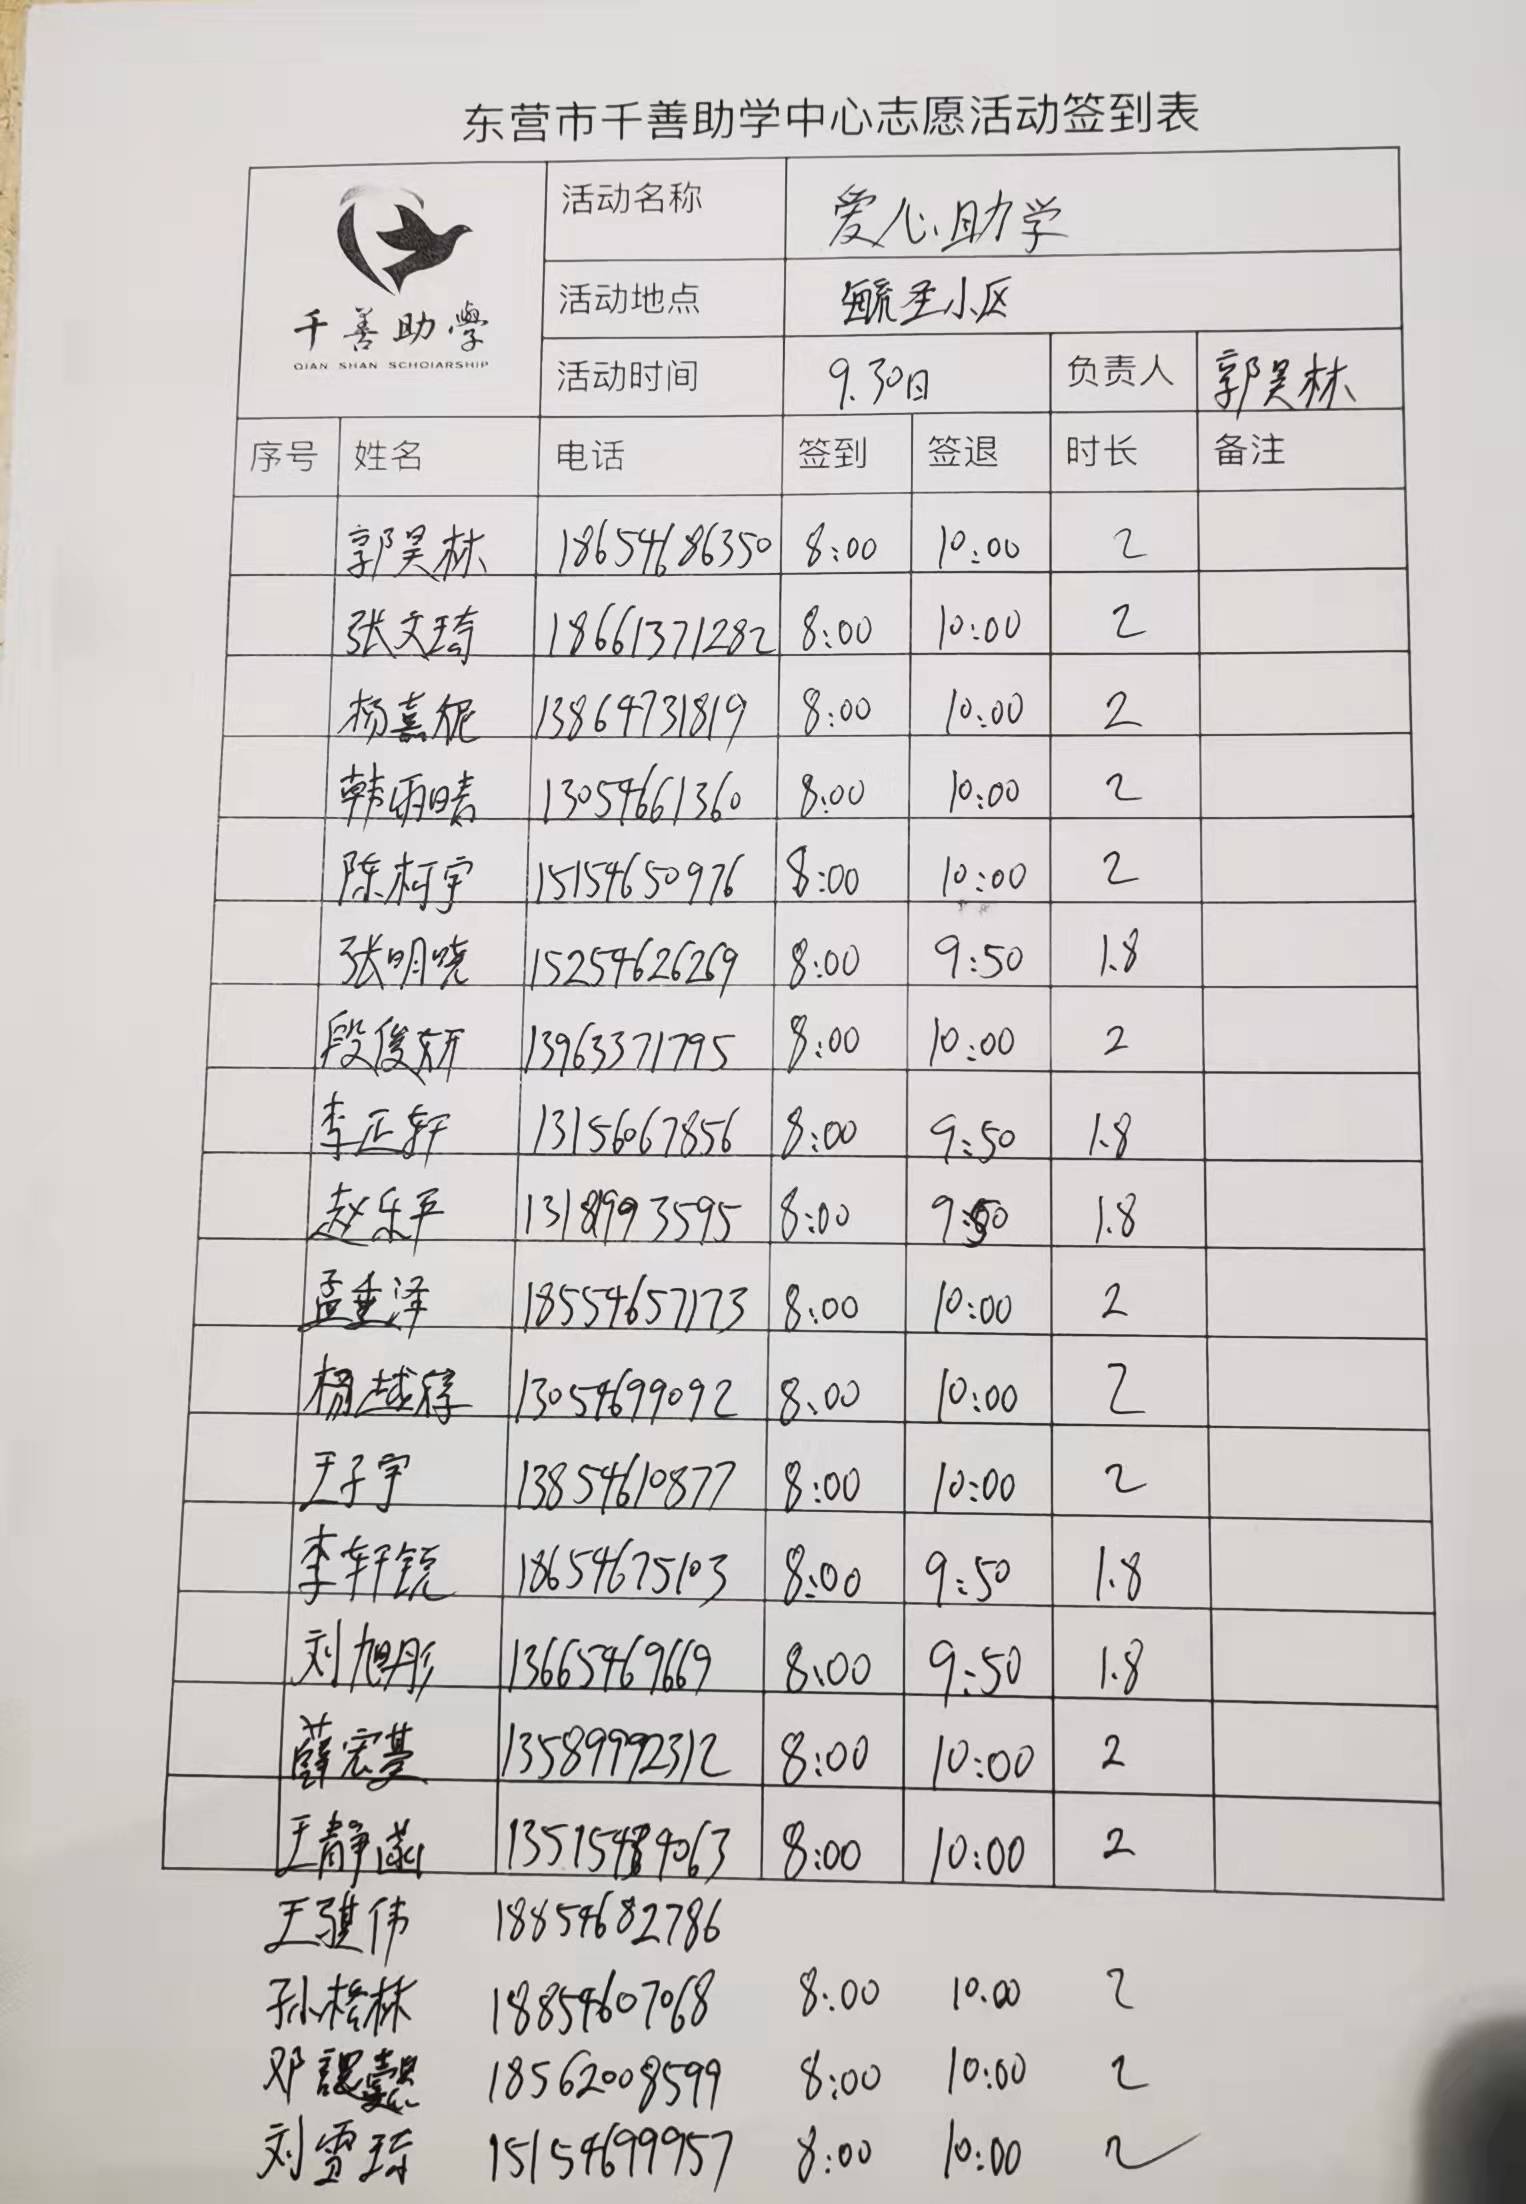 东营市千善助学中心志愿活动签到表
千善助學
QIAN SHAN SCHOIARSHIP
活动名称 爱心助学
活动地点 毓圣小区
活动时间 9.30日 负责人 郭昊林
序号 姓名 电话 签到 签退 时长 备注
郭昊林 18654686350 8:00 10:00 2
张文琦 18661371282 8:00 10:00 2
杨嘉倪 13864731819 8:00 10:00 2
韩雨晴 13054661360 8:00 10:00 2
陈柯宇 15154650976 8:00 10:00 2
张明晓 15254626269 8:00 9:50 1.8
段俊妍 13963371795 8:00 10:00 2
李正轩 13156067856 8:00 9:50 1.8
赵乐平 13181993595 8:00 9:50 1.8
孟垂泽 18554657173 8:00 10:00 2
杨越 13054699092 8:00 10:00 2
王子宇 13854610877 8:00 10:00 2
李轩锐 18654675103 8:00 9:50 1.8
刘旭彤 13665469669 8:00 9:50 1.8
薛宏蔓 13589992312 8:00 10:00 2
王静菡 8:00 10:00 2
王骐伟 18854682786
孙格林 18854607068 8:00 10:00 2
邓 18562008599 8:00 10:00 2
刘雪琦 15154699957 8:00 10:00 2